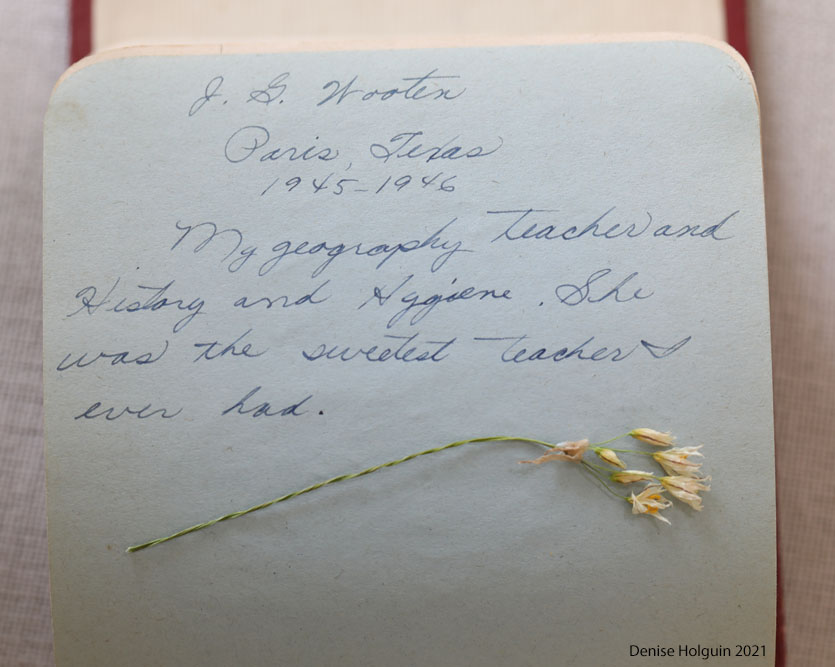 J. G. Wooten
Paris, Texas
1945-1946
My geography teacher and
History and Hygiene. She
was the sweetest teacher I
ever had.
Denise Holguin 2021